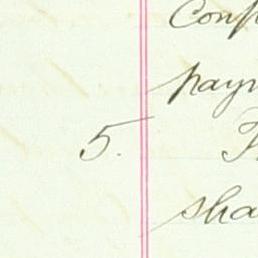 Conf
paym
5. Th
sha